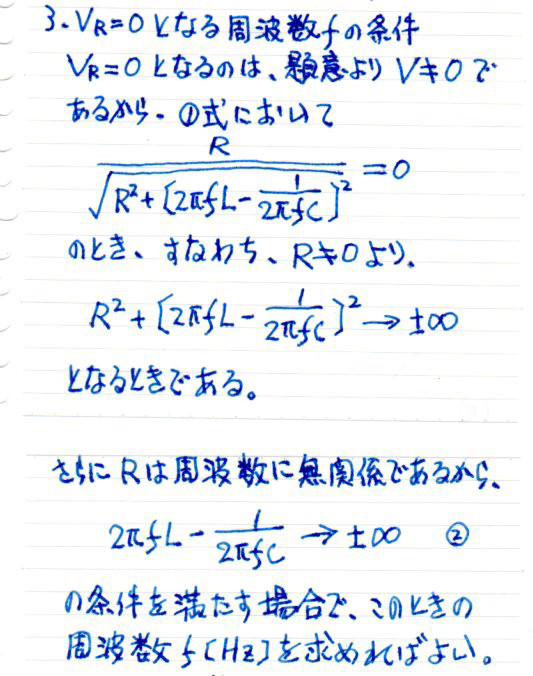 3. VR=0となる周波数fの条件
VR=0となるのは、題意よりV≠0で
あるから、①式において
R/√(R²+[2πfL-1/(2πfC)]²)=0
のとき、すなわち、R≠0より、
R²+[2πfL-1/(2πfC)]²→±∞
となるときである。
さらにRは周波数に無関係であるから、
2πfL-1/(2πfC)→±∞ ②
の条件を満たす場合で、このときの
周波数f[Hz]を求めればよい。